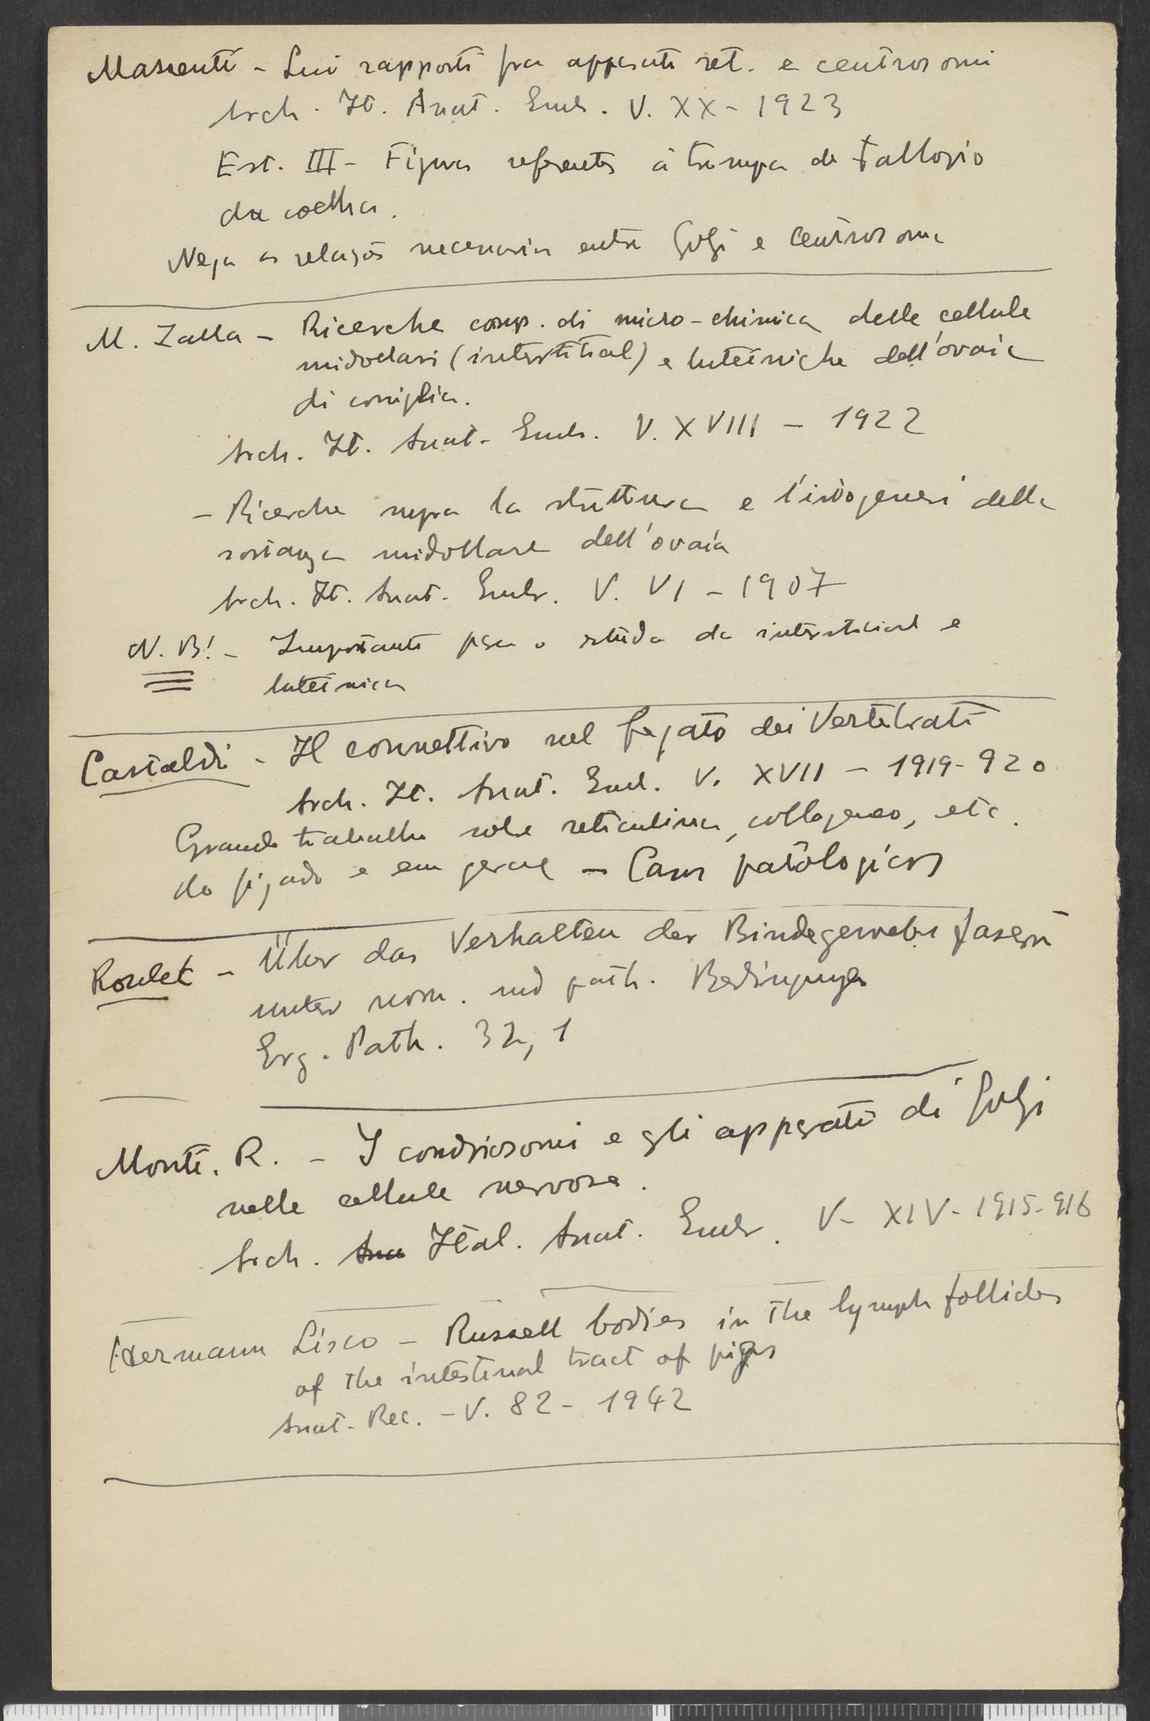 Massenti - Sui rapporti fra apparati ret. e centrosomi
Arch. It. Anat. Emb. V. XX - 1923
Est. III - Figuras referentes á trompa de Fallopio
da coelha.
Nega as relações necessarias entre Golgi e centrosoma
M. Zalla - Ricerche comp. di micro-chimica delle cellule
midollari (interstitial) e luteiniche dell'ovaia
di coniglia.
Arch. It. Anat. Emb. V. XVIII - 1922
- Ricerche sopra la struttura e l'istogenesi della
sostanza midollare dell'ovaia
Arch. It. Anat. Embr. V. VI - 1907
N. B! - Importante para o estudo da intersticial e
luteinica
Castaldi - Il connettivo nel fegato dei Vertebrati
Arch. It. Anat. Emb. V. XVII - 1919-920
Grande trabalho sobre reticulina, collageneo, etc.
do figado e em geral - Casos patologicos
Roulet - Über das Verhalten der Bindegewebsfasern
unter norm. und path. Bedingungen
Erg. Path. 32, 1
Monti. R. - I condriosomi e gli apparati di Golgi
nelle cellule nervose.
Arch. Ital. Anat. Embr. V - XIV - 1915-916
Hermann Lisco - Russell bodies in the lymph follicles
of the intestinal tract of pigs
Anat. Rec. - V. 82 - 1942